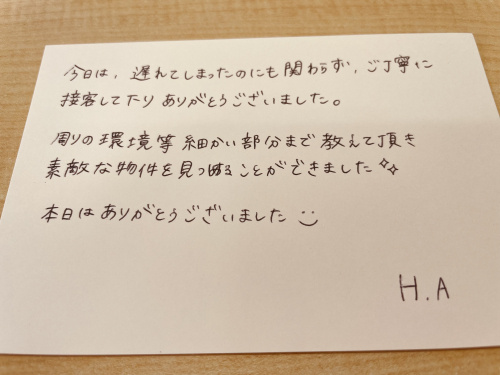 今日は、遅れてしまったのにも関わらず、ご丁寧に
接客して下りありがとうございました。
周りの環境等細かい部分まで教えて頂き
素敵な物件を見つめることができました✨
本日はありがとうございました☺
H.A